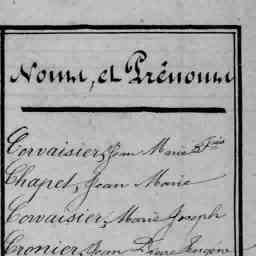 Noms, et Prénoms
Corvaisier, Jean Marie Fois
Chapel, Jean Marie
Corvaisier, Marie Joseph
Cronier, Jean Pierre Eugène